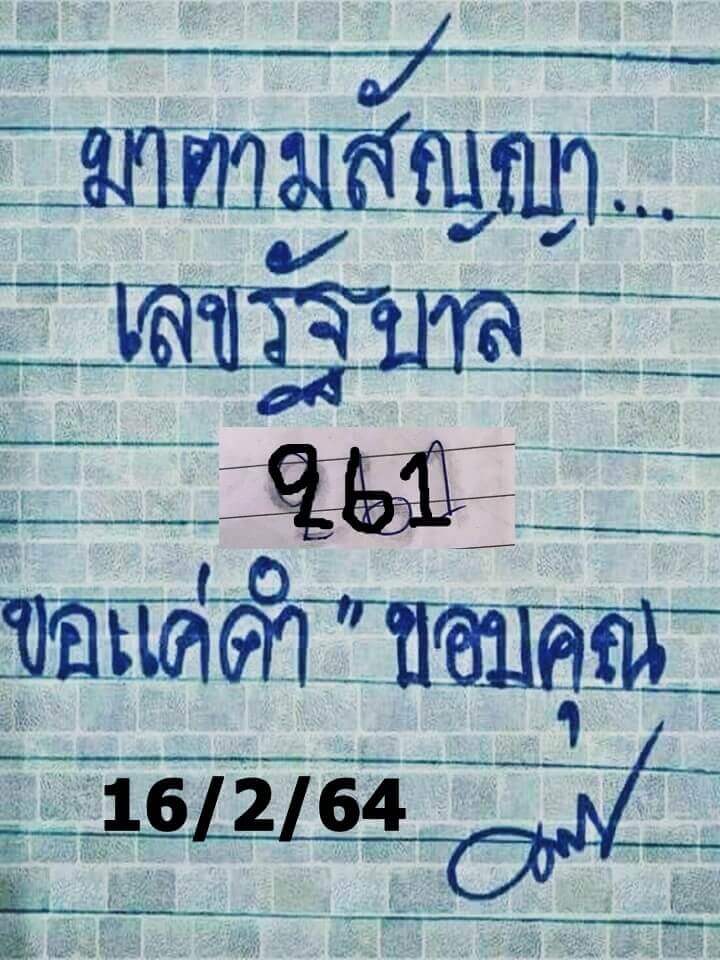 มาตามสัญญา...
เลขรัฐบาล
961
ขอแค่คำ "ขอบคุณ
16/2/64